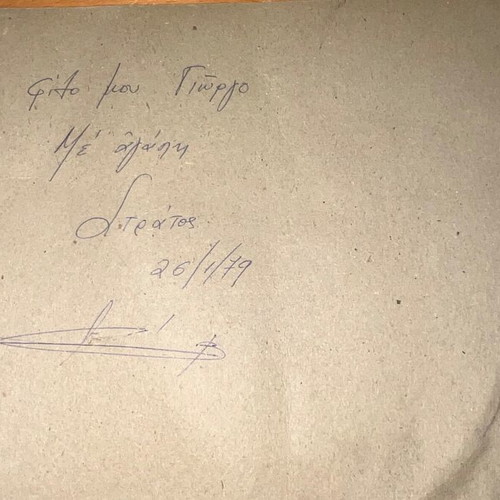 φίλο μου Γιῶργο
Μέ ἀγάπη
Στράτος
26/1/79